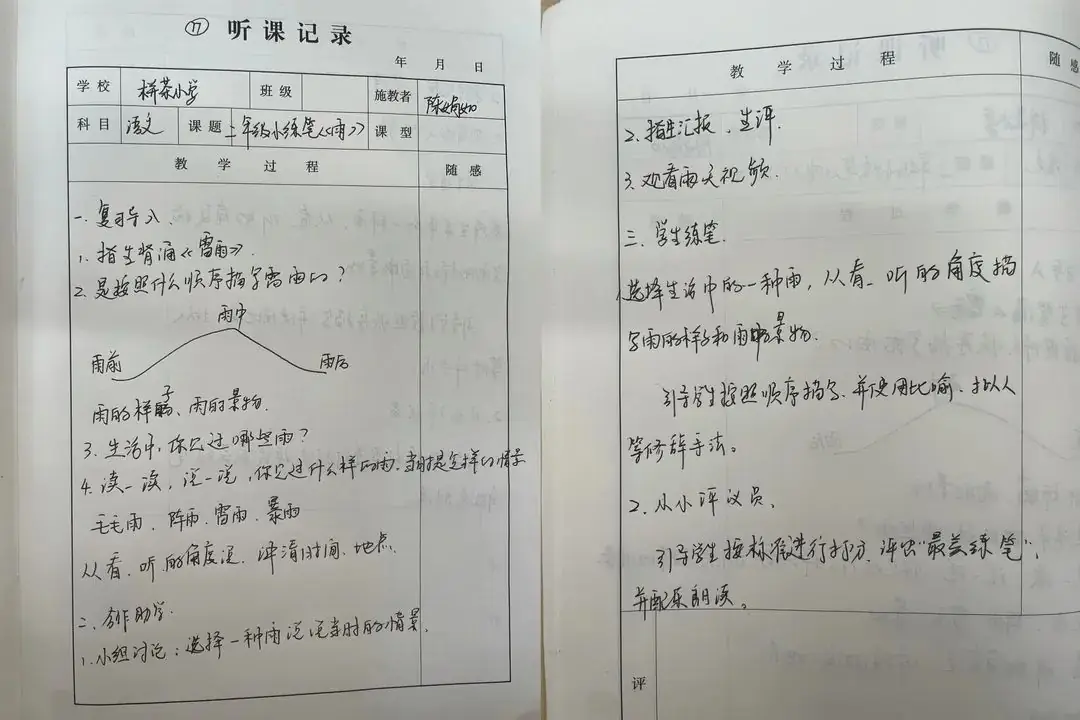 ⑰ 听课记录
年 月 日
学校 栟茶小学 班级 施教者
科目 语文 课题 二年级小练笔《雨》 课型
教 学 过 程 随感
一、复习导入
1、指生背诵《雷雨》.
2、是按照什么顺序描写雷雨的?
雨中
雨前 雨后
雨的样子、雨的景物.
3、生活中,你见过哪些雨?
4、读一读,说一说,你见过什么样的雨,当时是怎样的情景
毛毛雨、阵雨、雷雨、暴雨
从看、听的角度说,讲清时间、地点.
二、合作助学.
1、小组讨论:选择一种雨说说当时的情景.
教 学 过 程 随感
2、指生汇报,生评.
3、观看雨天视频.
三、学生练笔.
1、选择生活中的一种雨,从看、听的角度描
写雨的样子和雨中景物.
引导学生按照顺序描写,并使用比喻、拟人
等修辞手法。
2、从小评议员.
引导学生按标准进行打分,评出“最美练笔”,
并配乐朗读。
评